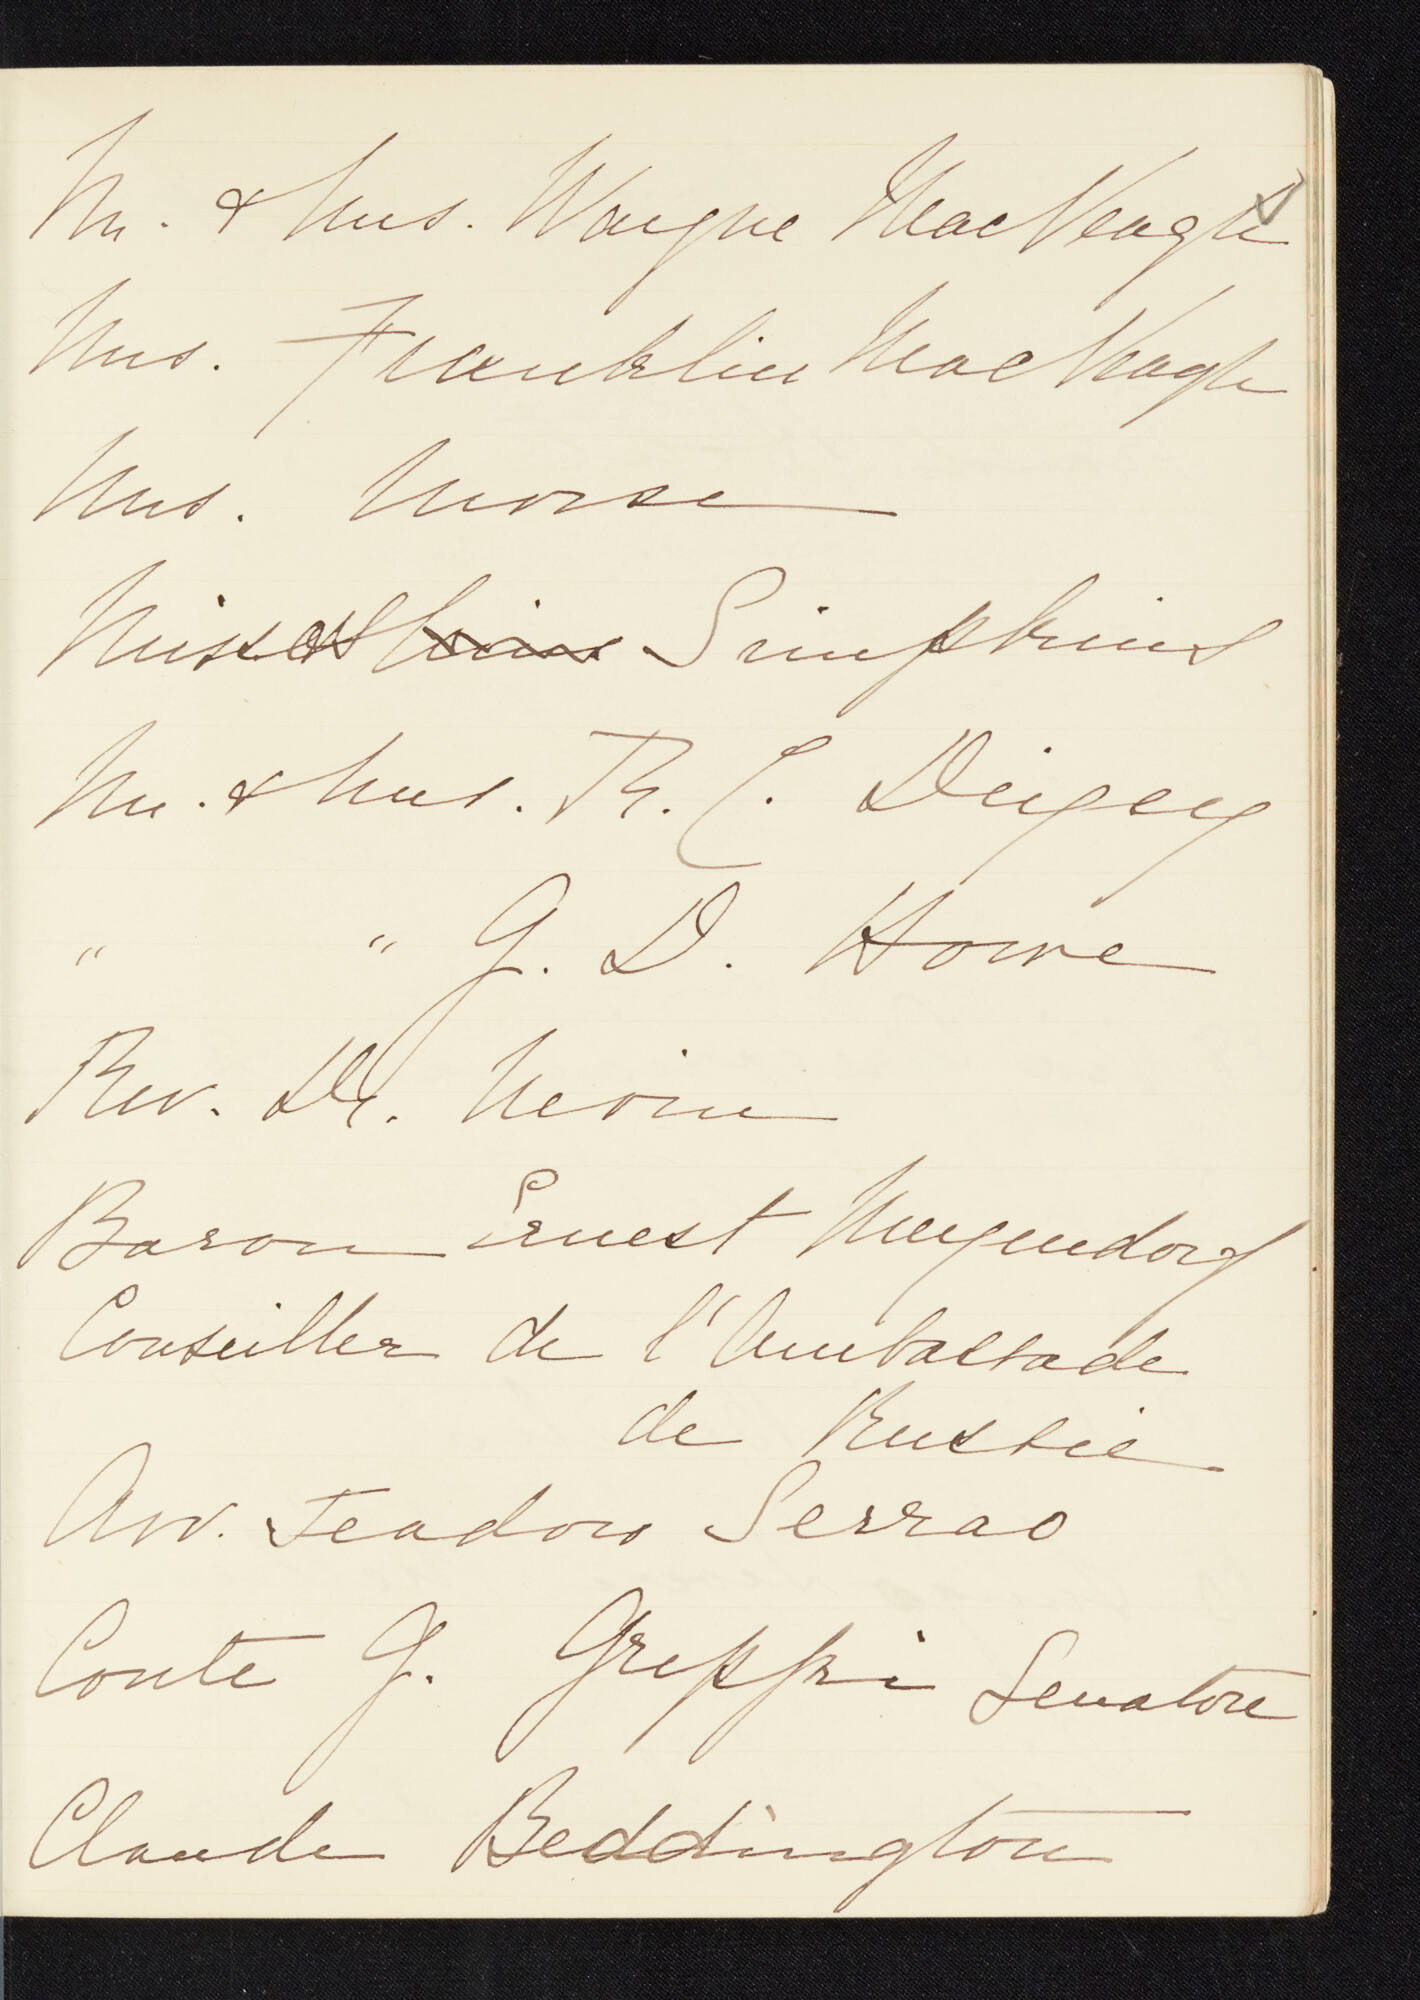 Mr. & Mrs. Wayne MacVeagh
Mrs. Franklin MacVeagh
Mrs. Morse
Misses Simpkins
Mr. & Mrs. R. C. Dixey
" " G. D. Howe
Rev. Dr. Nevin
Baron Ernest Meyendorf
Conseiller de l'Ambassade
de Russie
Avv. Teadoro Serrao
Conte G. Greppi Senatore
Claude Beddington